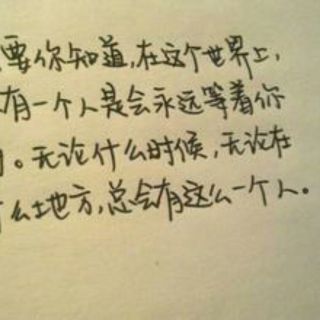 要你知道,在这个世界上,
有一个人是会永远等着你
。无论什么时候,无论在
么地方,总会有这么一个人。